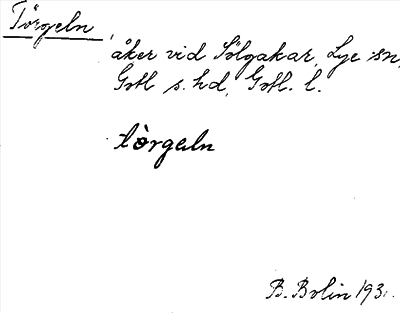 Törgeln
åker vid Sölgakar, Lye sn,
Gotl s. hd, Gotl. l.
tòrgaln
B. Bolin 193